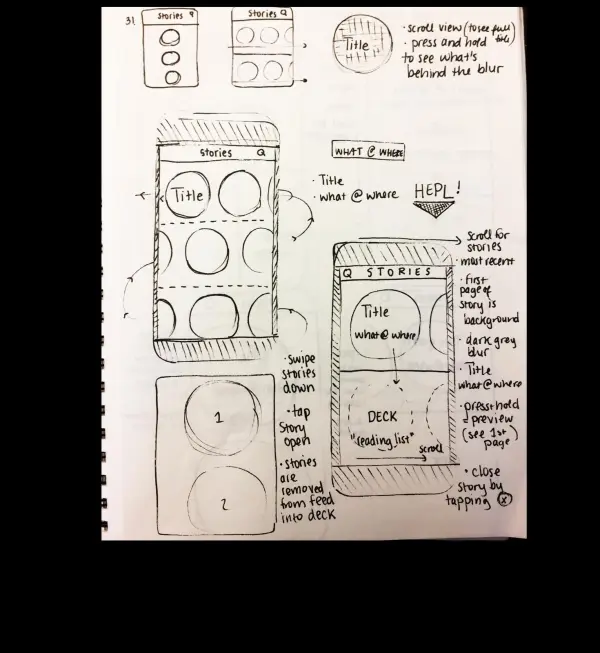 31
Stories
Stories Q
Title
• scroll view (to see full title)
• press and hold
to see what's
behind the blur
Stories Q
Title
WHAT @ WHERE
• Title
• what @ where
HEPL!
Scroll for
stories
• most recent
• first
page of
story is
background
• dark grey
blur
• Title
what@where
• press+hold
= preview
(see 1st
page)
• close
story by
tapping X
Q STORIES
Title
what@where
DECK
"reading list"
scroll
• swipe
stories
down
• tap
story
open
• stories
are
removed
from feed
into deck
1
2